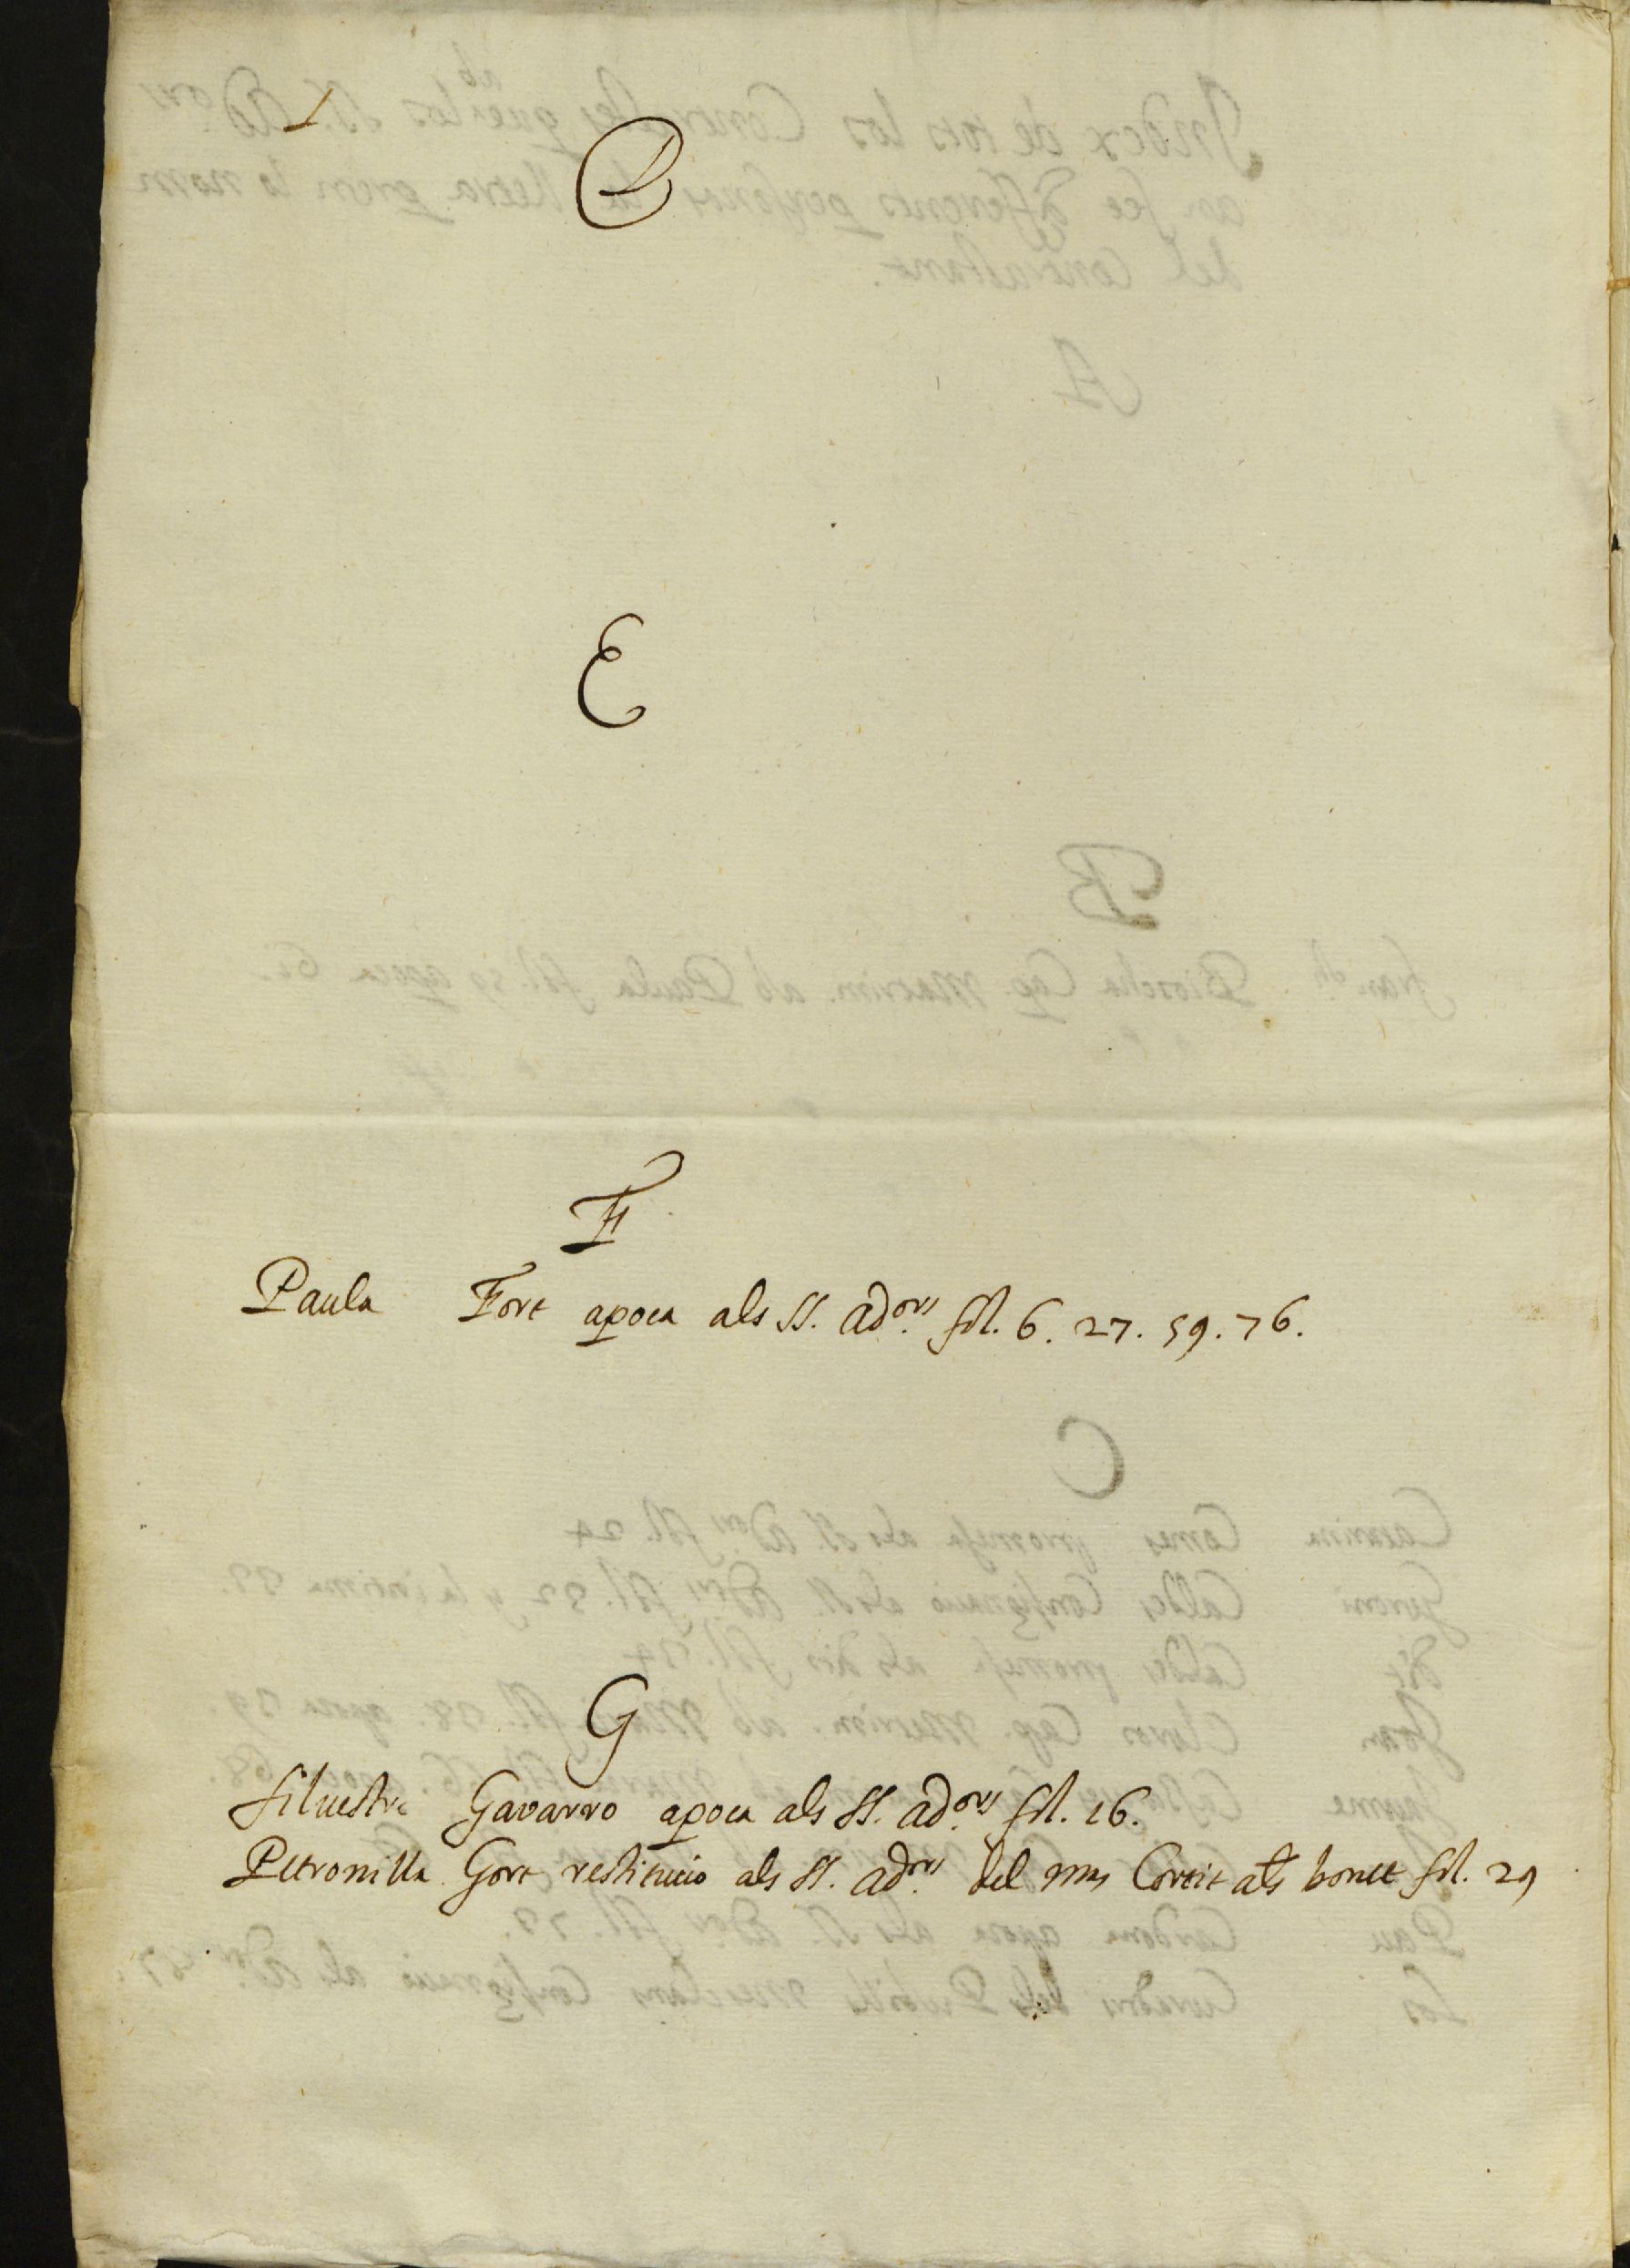 D
E
F
Paula Fort apoca als SS. Ad.ors fol. 6. 27. 59. 76.
G
Silvestre Gavarro apoca als SS. ad.ors fol. 16.
Petronilla Gort restitucio als SS. ad.ors del mas Cortit als bonet fol. 29